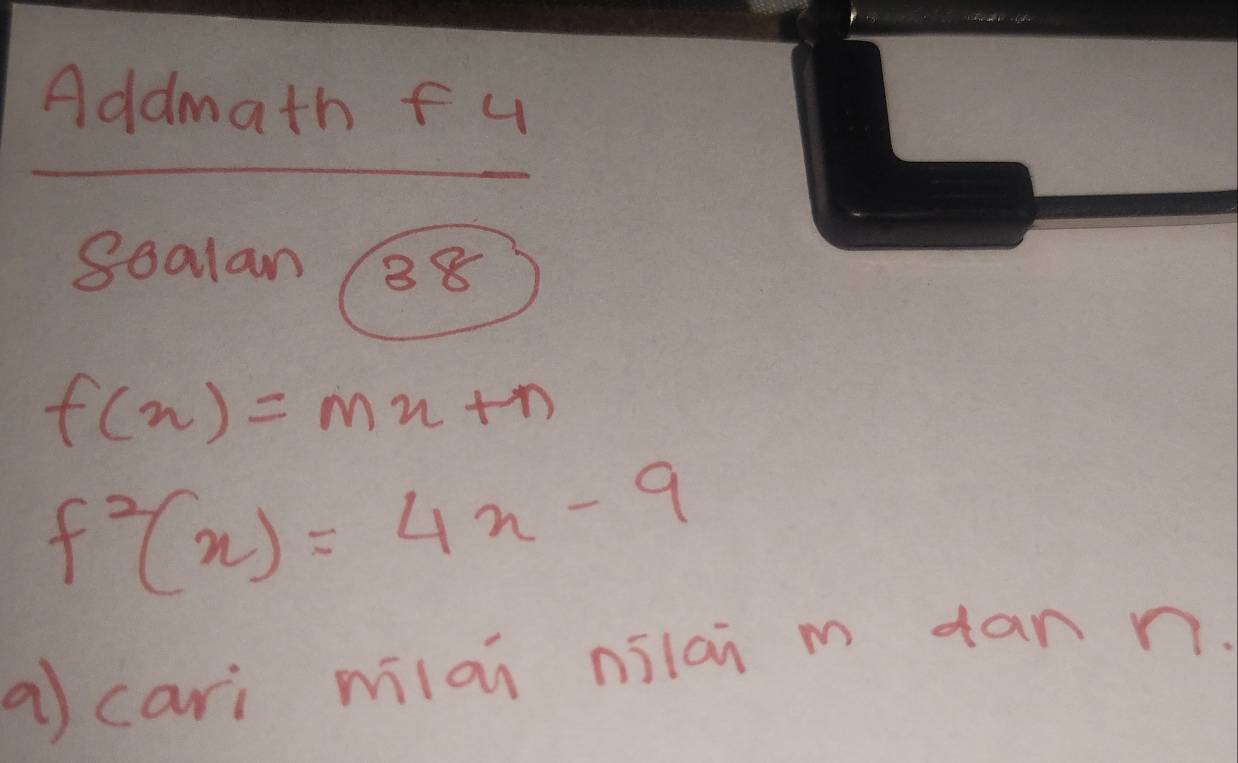 Addmath f 4
Soalan 38
f(x) = mx + n
f²(x) = 4x - 9
a) cari nilai nilai m dan n.